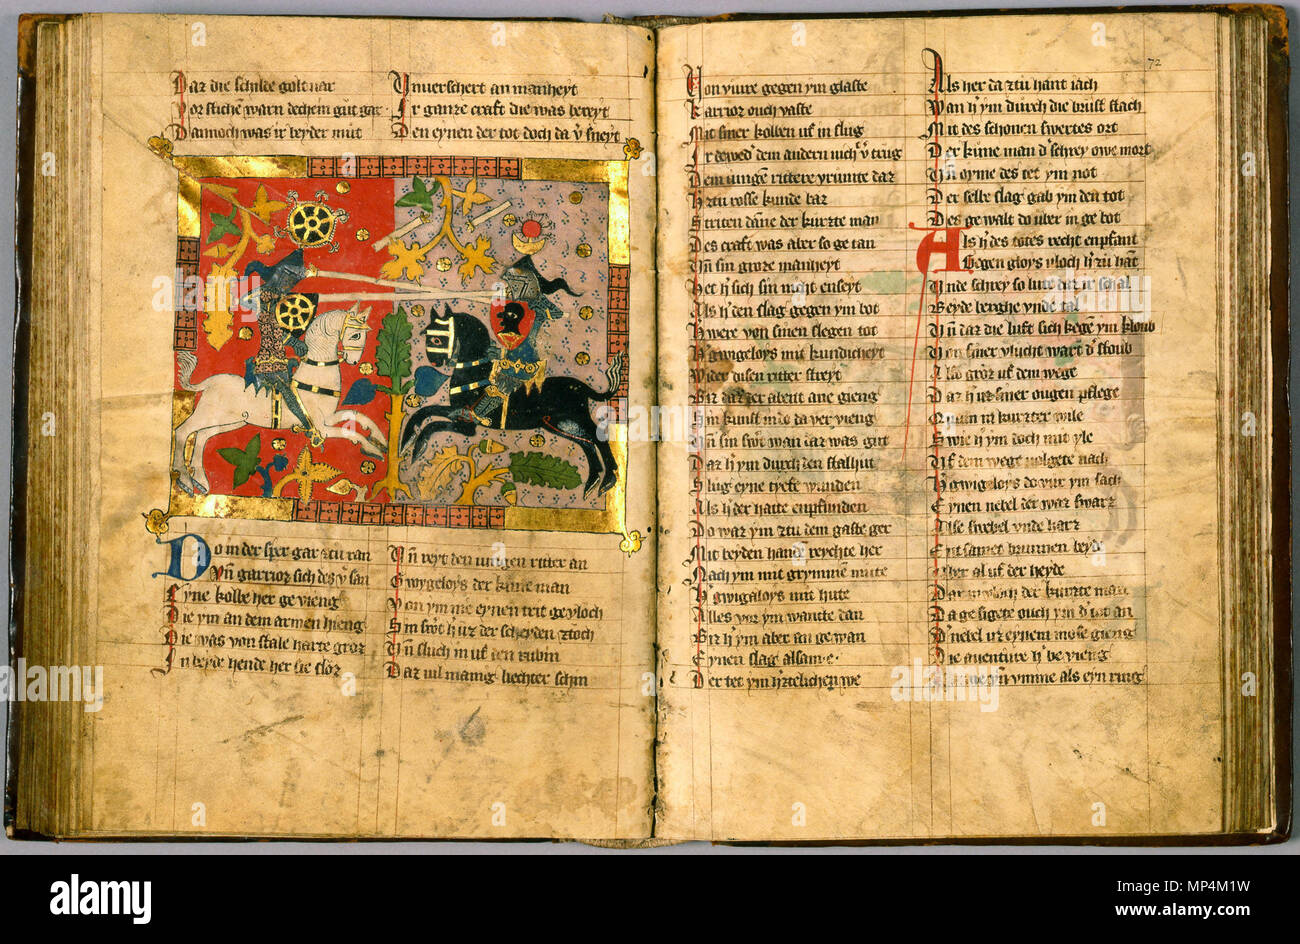 Daz die schilde golt var
Vor stiche warn dechein gut gar
Dannoch was ir beyder mut
Unverschert an manheyt
Ir ganze craft die was bereyt
Den eynen der tot doch da v̄sneyt
Do in der sper gar zu ran
Vn̄ garrior sich des v̄san
Eyne kolbe her gevieng
Die ym an dem armen hieng
Die was von stale harte groz
In beyde hende her sie sloz
Vn̄ reyt den iungen ritter an
Gwygeloys der kune man
Von ym nie eynen trit gevloch
Sin swert h uz der scheyden zoch
Vn̄ sluch in uf den rubin
Daz vil manig liechter schin
72
Von viure gegen ym glaste
Karrior ouch vaste
Mit siner kolben uf in slug
Ir dewed' dem andern nicht v̄trug
Dem iungē rittere vrunte daz
H zu rosse kunde baz
Striten dāne der kurze man
Des craft was aber so getan
Vn̄ sin groze manheyt
Het h sich sin nicht enseyt
Als h den slag gegen ym bot
H were von sinen slegen tot
H gwigeloys mit kundicheyt
Wider disen ritter streyt
Biz daz der abent ane gieng
Sin kunst in do da ver vieng
Vn̄ sin swert wan daz was gut
Daz h ym durch den stalhut
Slug eyne tyefe wunden
Als h der hatte enpfunden
Do war ym zu dem gaste ger
Mit beyden handē reychte her
Nach ym mit grymmē mute
H gwigaloys mit hute
Alles vor ym wancte dan
Biz h ym aber an gewan
Eynen slag alsam e
Der tet ym h'ztelichen we
Als her da zu hant iach
Wan h ym durch die brust stach
Mit des schonen swertes ort
Der kune man d' schrey owe mort
Vn̄ oyme des tet ym not
Der selbe slag gab ym den tot
Des gewalt do uber in gebot
Als h des totes recht enpfant
Gegen gloys vloch h zu hat
Vnde schrey so lute daz ir schal
Beyde berghe vnde tal
Vn̄ daz die luft sich kegē ym kloub
Von siner vlucht wart d' stoub
Also groz uf dem wege
Daz h siner ougen pflege
Quam in kurzter wile
Swie h ym doch mit yle
Uf dem wege volgete nach
H gwigeloys do vur ym sach
Eynen nebel der war swarz
Alse swebel vnde harz
Ensamet brunnen beyde
Aber al uf der heyde
Dar in vloch der kurzte man
Da gesigete ouch ym d' tot an
D' nebel uz eynem mose gieng
Die aventure h bevieng